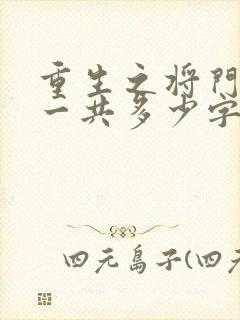 重生之将門
一共多少字
四元島子(四元